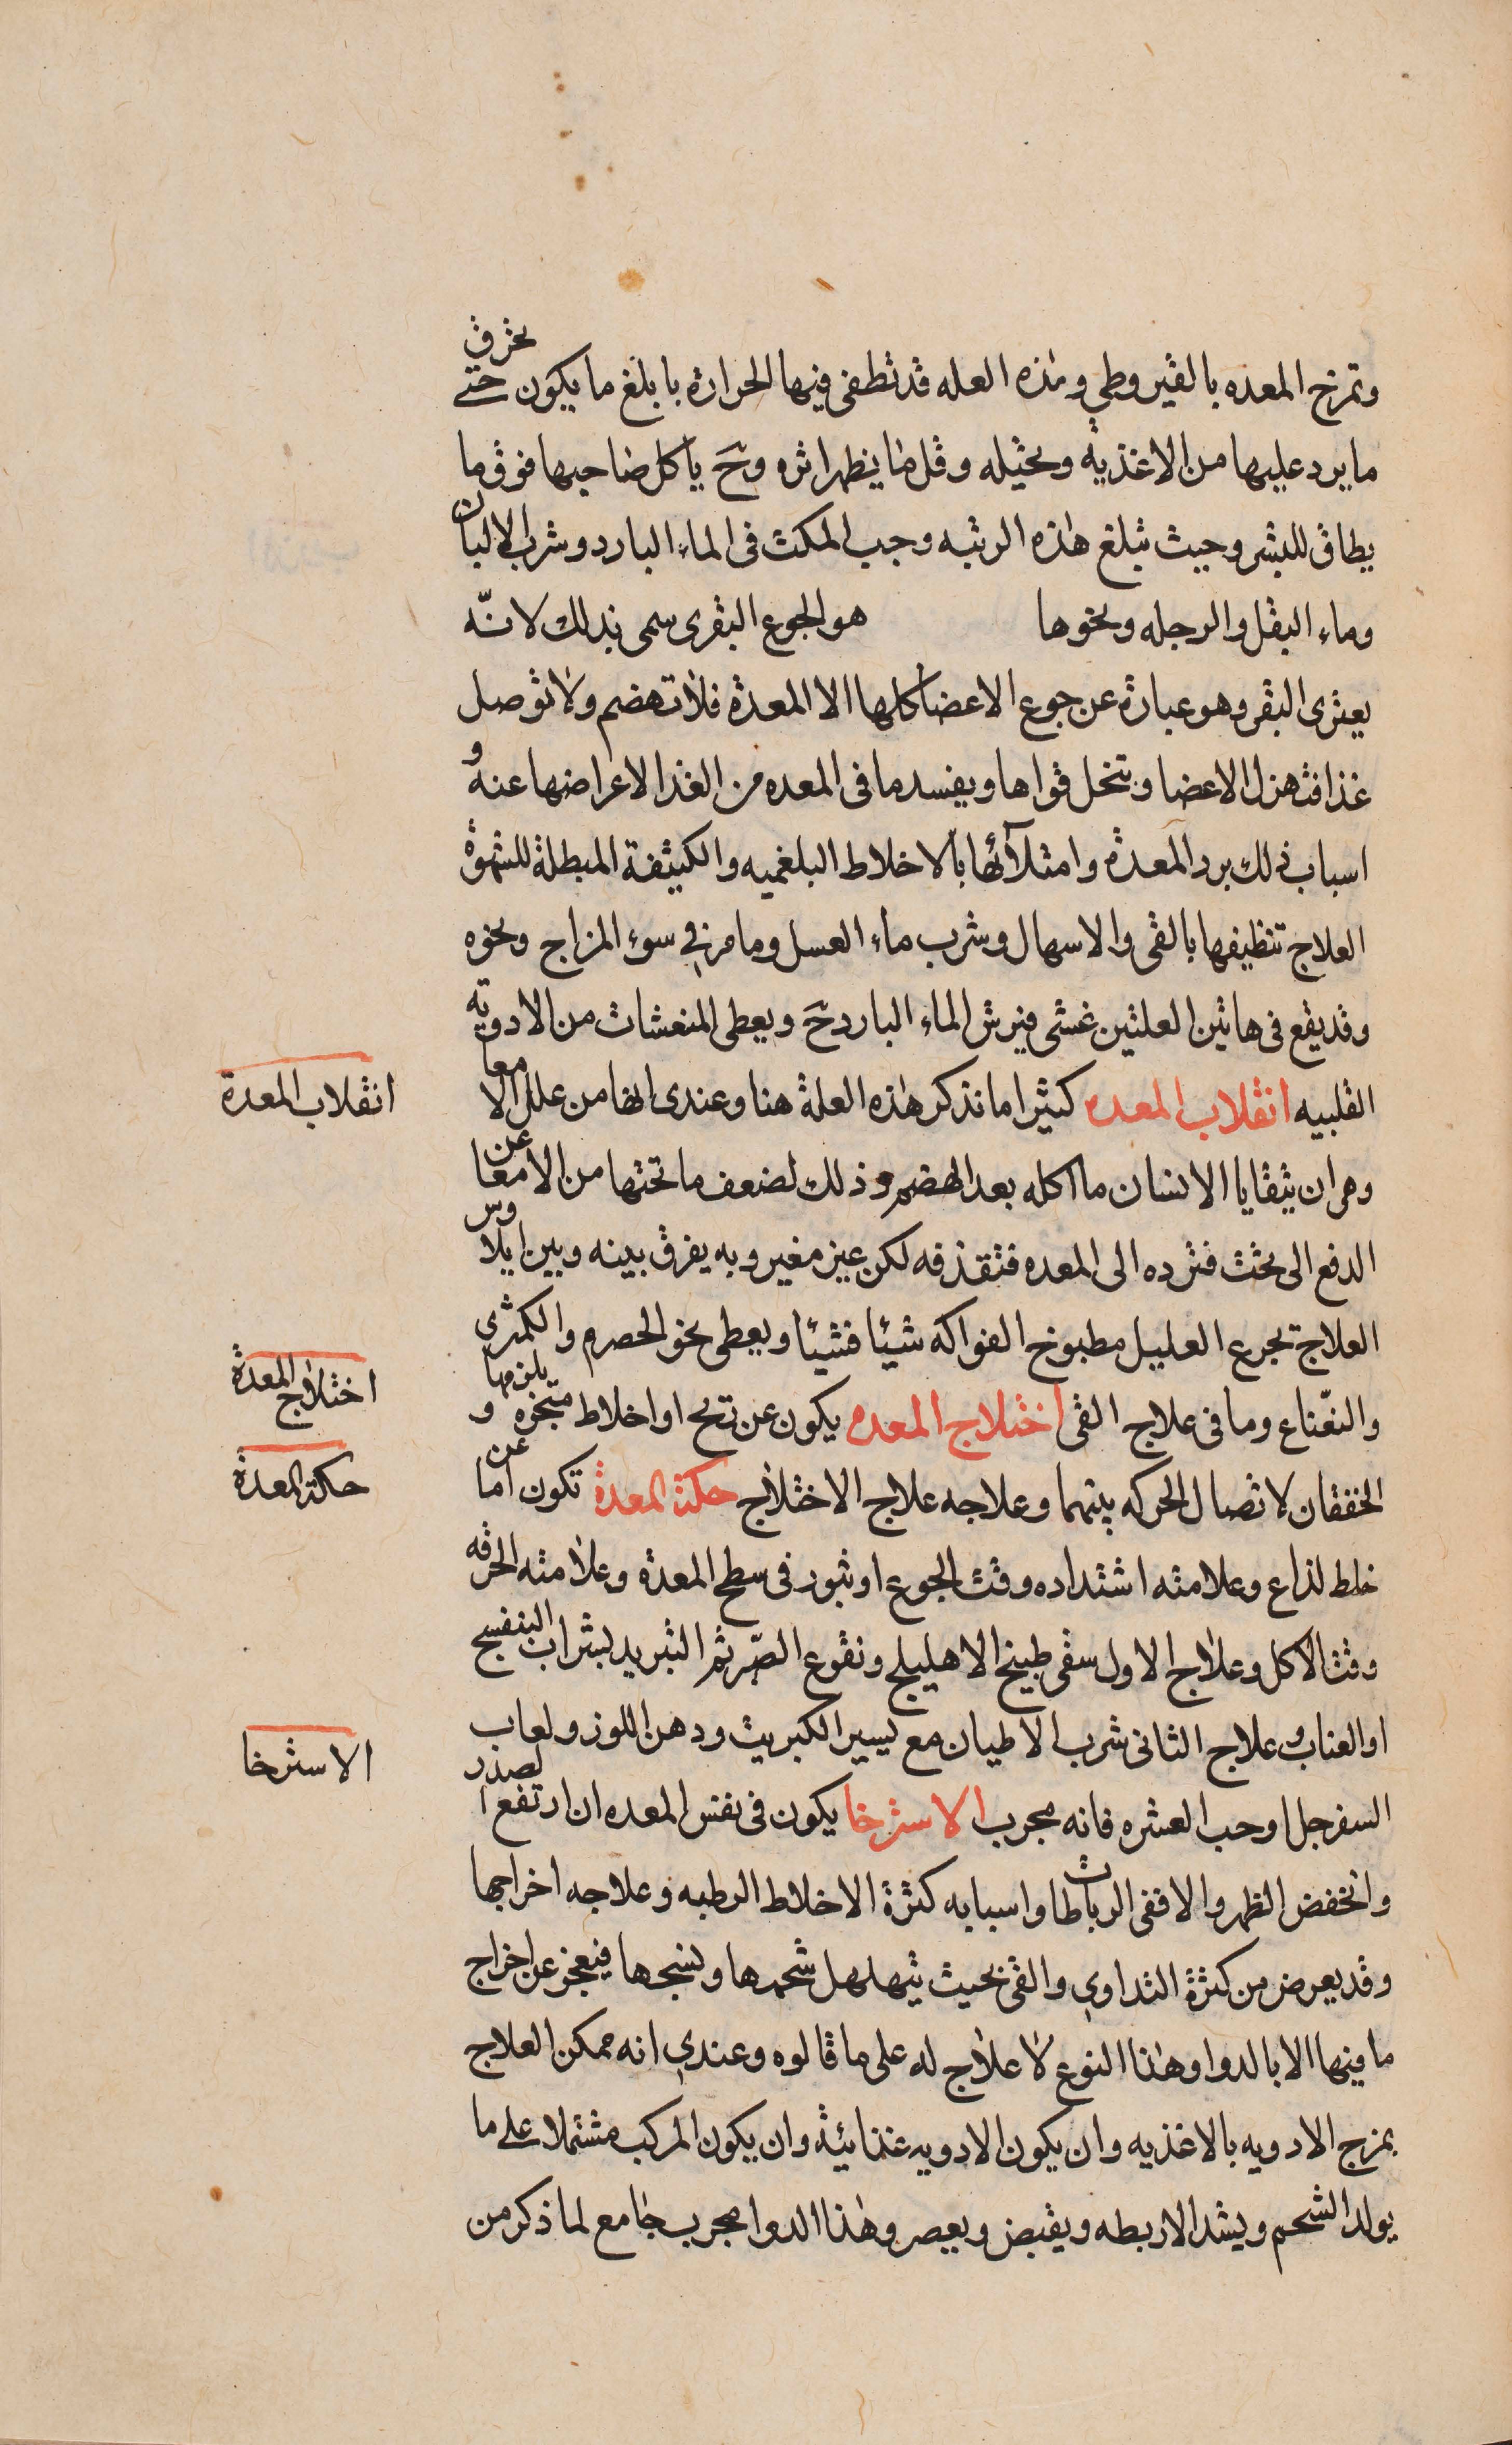 وتمرخ المعده بالقيروطي وهذه العله قد تطفى فيها الحرارة بابلغ ما يكون حتى تحرق
ما يرد عليها من الاغذية وتحيله وقل ما يظهر اثره وحَ ياكل صاحبها فوق ما
يطاق للبشر وحيث تبلغ هذه الرتبه وجب المكث فى الماء البارد وشرب الالبان
وماء البقل والرجله ونحوها هو الجوع البقرى سمى بذلك لانّه
يعترى البقر وهو عبارة عن جوع الاعضا كلها الا المعدة فلا تهضم ولا توصل
غذا فتهزل الاعضا وتنحل قواها ويفسد ما فى المعده من الغذا لاعراضها عنه و
اسباب ذلك برد المعدة وامتلآئها بالاخلاط البلغميه والكثيفة المبطلة للشهوة
العلاج تنظيفها بالقى والاسهال وشرب ماء العسل وما مر في سوء المزاج ونحوه
وقد يقع فى هاتين العلتين غشى فيرش الماء البارد حَ ويعطى المنعشات من الادويه
القلبيه انقلاب المعده كثيرا ما تذكر هذه العلة هنا وعندى انها من علل الامعا
انقلاب المعدة
وهى ان يتقايا الانسان ما اكله بعد الهضم وذلك لضعف ما تحتها من الامعا عن
الدفع الى تحت فترده الى المعده فتقذفه لكن غير مغير وبه يفرق بينه وبين ايلاوس
العلاج تجرع العليل مطبوخ الفواكه شيئا فشيئا ويعطى نحو الحصرم والكمثرى
والنعّناع وما فى علاج القى اختلاج المعده يكون عن ريح او اخلاط متبخره و يلزمها
اختلاج المعدة
الخفقان لاتصال الحركه بينهما وعلاجه علاج الاختلاج حكة المعدة تكون اما عن
حكة المعدة
خلط لذاع وعلامته اشتداده وقت الجوع او بثور فى سطح المعدة وعلامته الحرقه
وقت الاكل وعلاج الاول سقى طبيخ الاهليلج ونقوع الصّبر ثم التبريد بشراب البنفسج
او العناب وعلاج الثانى شرب الاطيان مع يسير الكبريت ودهن اللوز ولعاب
السفرجل او حب العشره فانه مجرب الاسترخا يكون فى نفس المعده ان ارتفع الصدر
الاسترخا
وانخفض الظهر والا ففى الرباطات واسبابه كثرة الاخلاط الرطبه وعلاجه اخراجها
وقد يعرض من كثرة التداوى والقى بحيث يتهلهل شحمها ونسجها فيعجز عن اخراج
ما فيها الا بالدوا وهذا النوع لا علاج له على ما قالوه وعندى انه ممكن العلاج
بمزج الادويه بالاغذيه وان يكون الادويه غذائية وان يكون المركب مشتملا على ما
يولد الشحم ويشد الاربطه ويقبض ويعصر وهذا الدوا مجرب جامع لما ذكر من